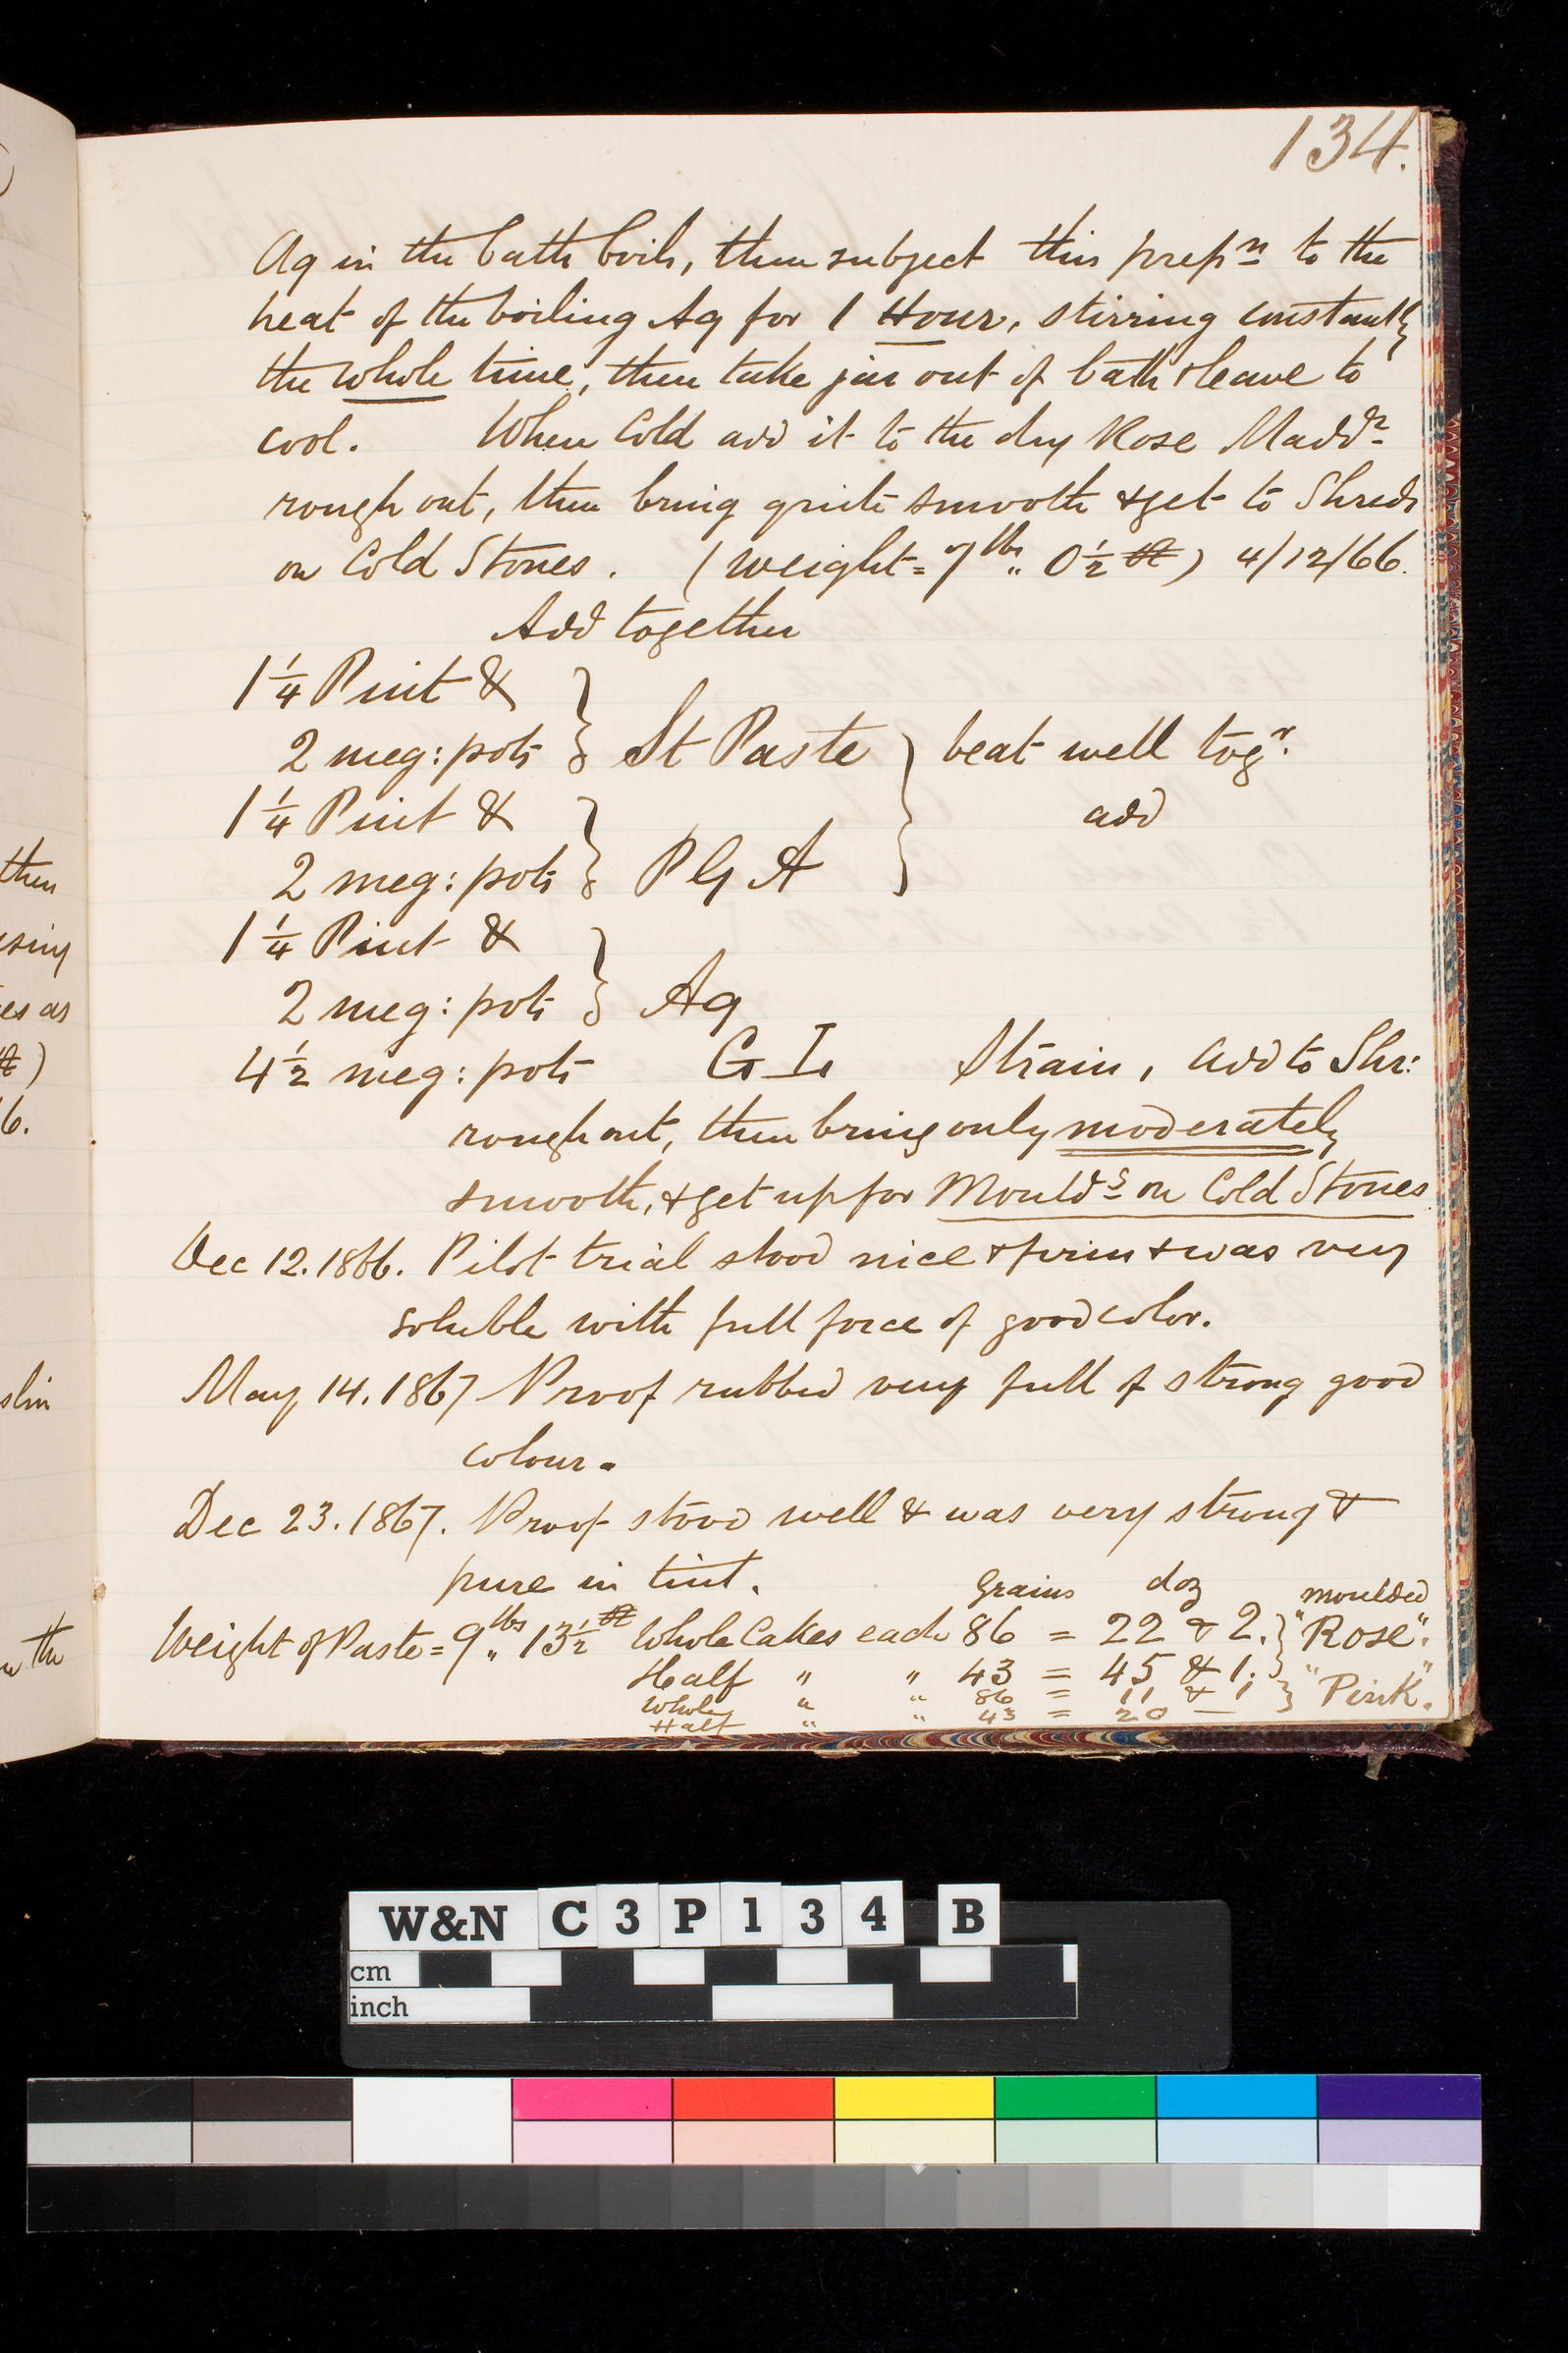 134.
Aq in the bath boils, then subject this prepn to the
heat of the boiling Aq for 1 Hour, stirring constantly
the whole time, then take jar out of bath & leave to
cool. When Cold add it to the dry Rose Maddr
rough out, then bring quite smooth & get to Shreds
on Cold Stones. (Weight = 7 lbs „ 0 1/2 ) 4/12/66.
Add together
1 1/4 Pint &
2 meg: pots } St Paste } beat well togr.
1 1/4 Pint & add
2 meg: pots } P G A
1 1/4 Pint &
2 meg: pots } Aq
4 1/2 meg: pots G I. Strain, add to Shr:
rough out, then bring only moderately
smooth, & get up for Moulds on Cold Stones.
Dec 12. 1866. Pilot trial stood nice & firm & was very
soluble with full force of good color.
May 14. 1867 Proof rubbed very full of strong good
colour.
Dec 23. 1867. Proof stood well & was very strong &
pure in tint.
grains doz moulded
Weight of Paste = 9 lbs „ 13 1/2 Whole Cakes each 86 = 22 & 2. } "Rose".
Half „ „ 43 = 45 & 1.
Whole „ „ 86 = 11 & 1 } "Pink".
Half „ „ 43 = 20 —
then
using
es as
)
6.
slin
the
W&N C 3 P 1 3 4 B
cm
inch